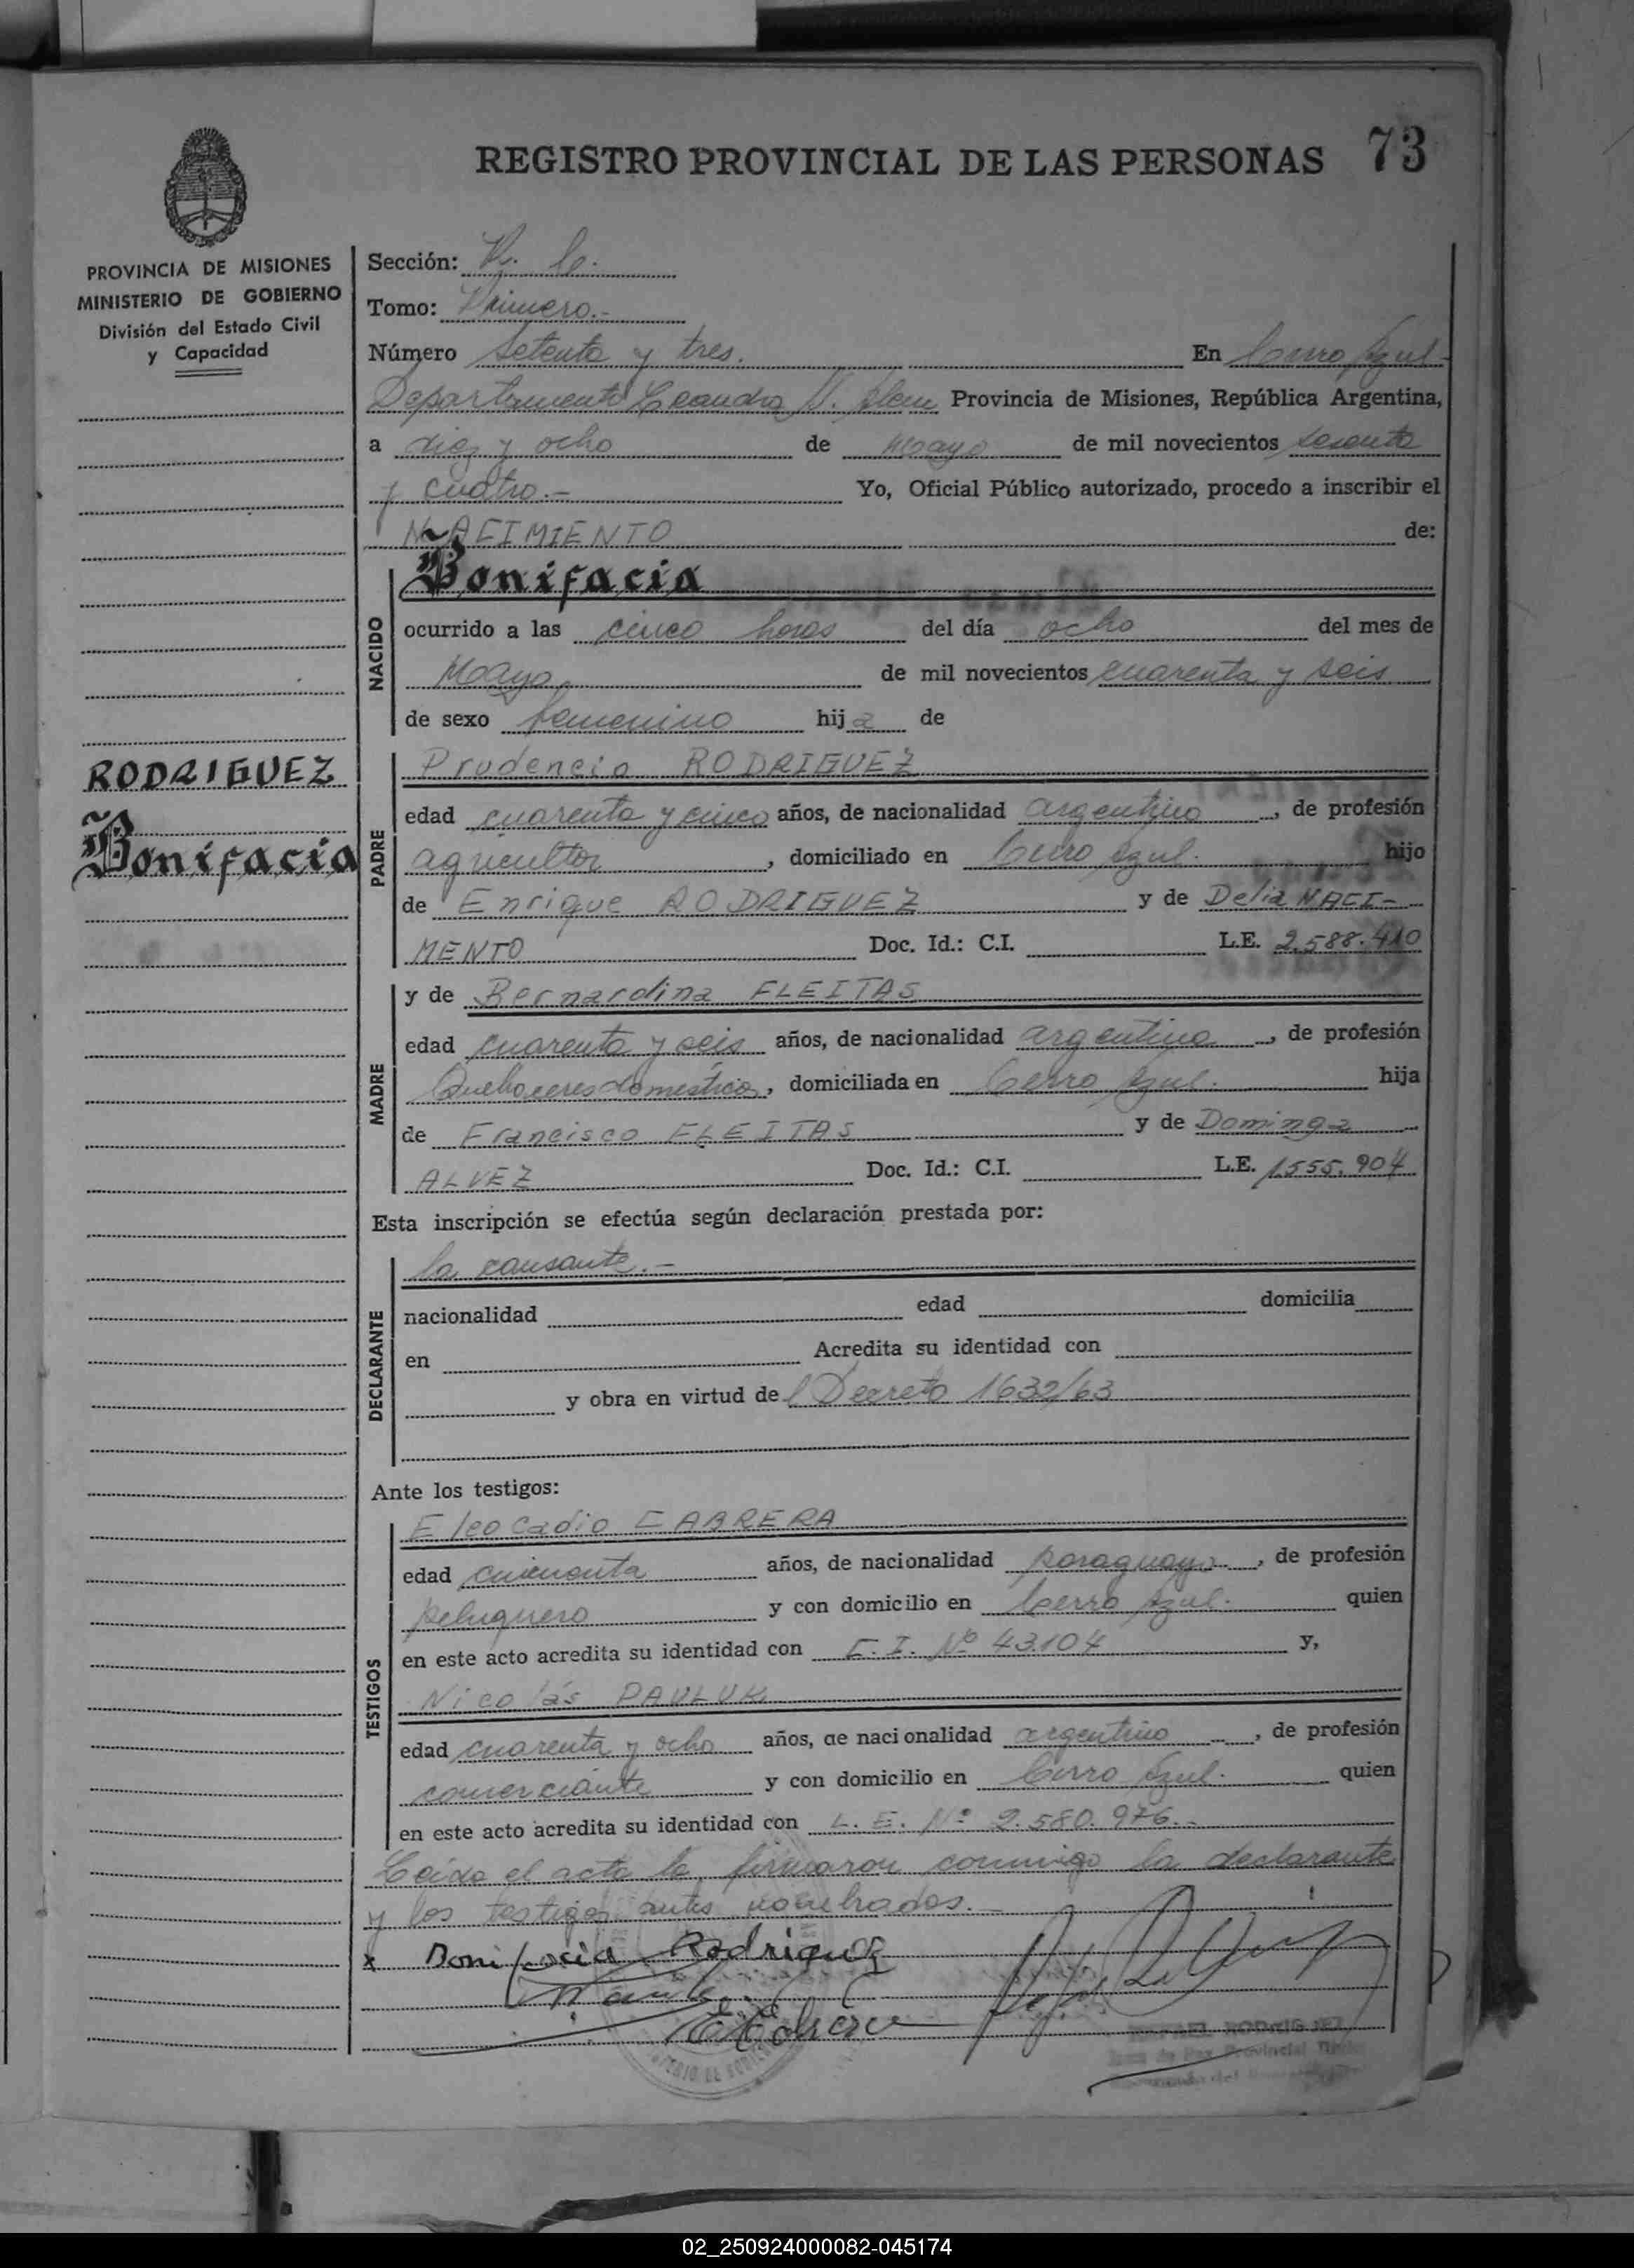 REGISTRO PROVINCIAL DE LAS PERSONAS 73
PROVINCIA DE MISIONES
MINISTERIO DE GOBIERNO
División del Estado Civil
y Capacidad
RODRIGUEZ
Bonifacia
Sección:
Tomo: Primero.-
Número Setenta y tres. En Cerro Azul
Departamento Leandro N. Alem Provincia de Misiones, República Argentina,
a diez y ocho de Mayo de mil novecientos sesenta
y cuatro.- Yo, Oficial Público autorizado, procedo a inscribir el
NACIMIENTO de:
NACIDO
Bonifacia
ocurrido a las cinco horas del día ocho del mes de
Mayo de mil novecientos cuarenta y seis
de sexo femenino hija de
PADRE
Prudencio RODRIGUEZ
edad cuarenta y cinco años, de nacionalidad argentino, de profesión
agricultor, domiciliado en Cerro Azul. hijo
de Enrique RODRIGUEZ y de Delia NACI-
MENTO Doc. Id.: C.I. L.E. 2.588.410
MADRE
y de Bernardina FLEITAS
edad cuarenta y seis años, de nacionalidad argentina, de profesión
Quehaceres domésticos, domiciliada en Cerro Azul. hija
de Francisco FLEITAS y de Dominga
ALVEZ Doc. Id.: C.I. L.E. 1.555.904
Esta inscripción se efectúa según declaración prestada por:
DECLARANTE
la causante.-
nacionalidad edad domicilia
en Acredita su identidad con
y obra en virtud del Decreto 1632/63
Ante los testigos:
TESTIGOS
Eleocadio CABRERA
edad cincuenta años, de nacionalidad paraguayo, de profesión
peluquero y con domicilio en Cerro Azul. quien
en este acto acredita su identidad con C.I. Nº 43.104 y,
Nicolás PAULUK
edad cuarenta y ocho años, de nacionalidad argentino, de profesión
comerciante y con domicilio en Cerro Azul. quien
en este acto acredita su identidad con L.E. Nº 2.580.976.-
Leída el acta la firmaron conmigo la declarante
y los testigos antes nombrados.-
x Bonifacia Rodriguez
02_250924000082-045174